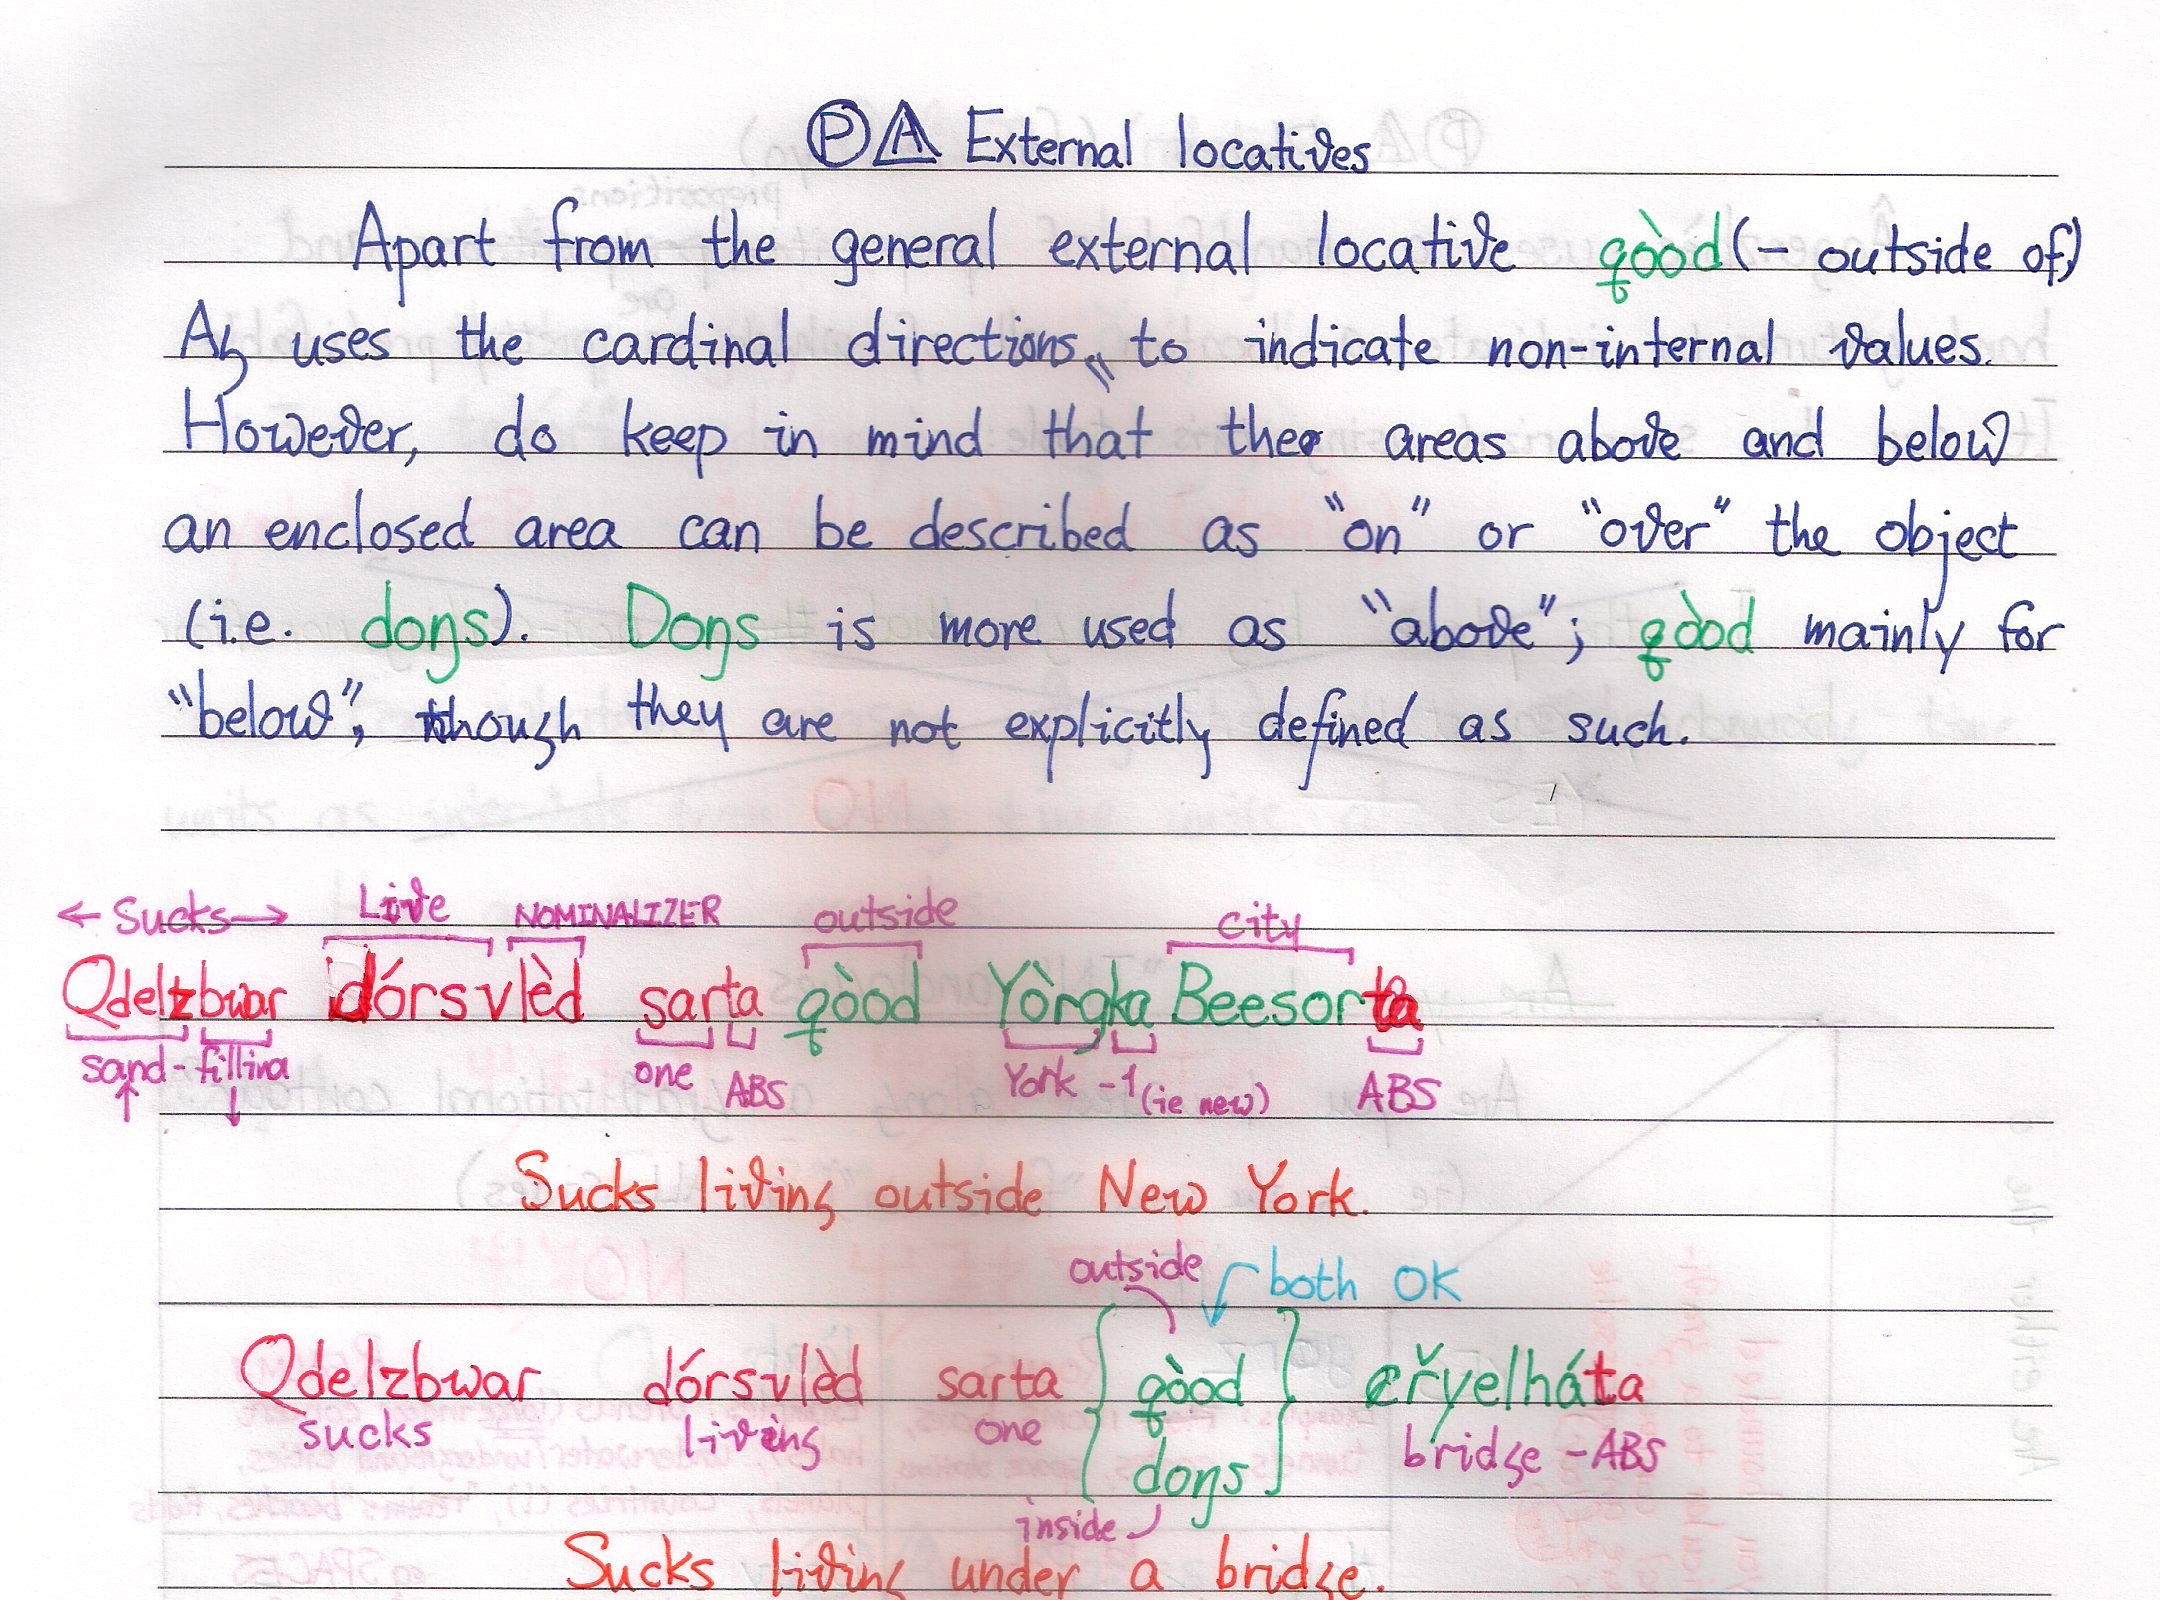 Ⓟ Ⓐ External locatives
Apart from the general external locative qòod (- outside of)
Aŋ uses the cardinal directions, to indicate non-internal values.
However, do keep in mind that the areas above and below
an enclosed area can be described as “on” or “over” the object
(i.e. doŋs). Doŋs is more used as “above”; qòod mainly for
“below”, though they are not explicitly defined as such.
← Sucks → Live NOMINALIZER outside city
Qdelzbwar dórsvlèd sarta qòod Yòrgka Beesorta
sand-filling one ABS York -1 (ie new) ABS
Sucks living outside New York.
outside both OK
Qdelzbwar dórsvlèd sarta { qòod } eřyelháta
sucks living one bridge -ABS
doŋs
inside
Sucks living under a bridge.